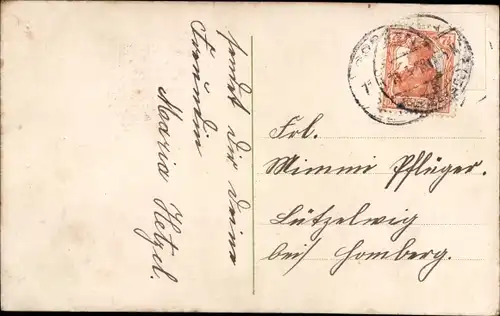 sendet dir deine
Freundin
Maria Hetzel.
Frl.
Mimmi Pflüger.
Lützelwig
bei Homberg.